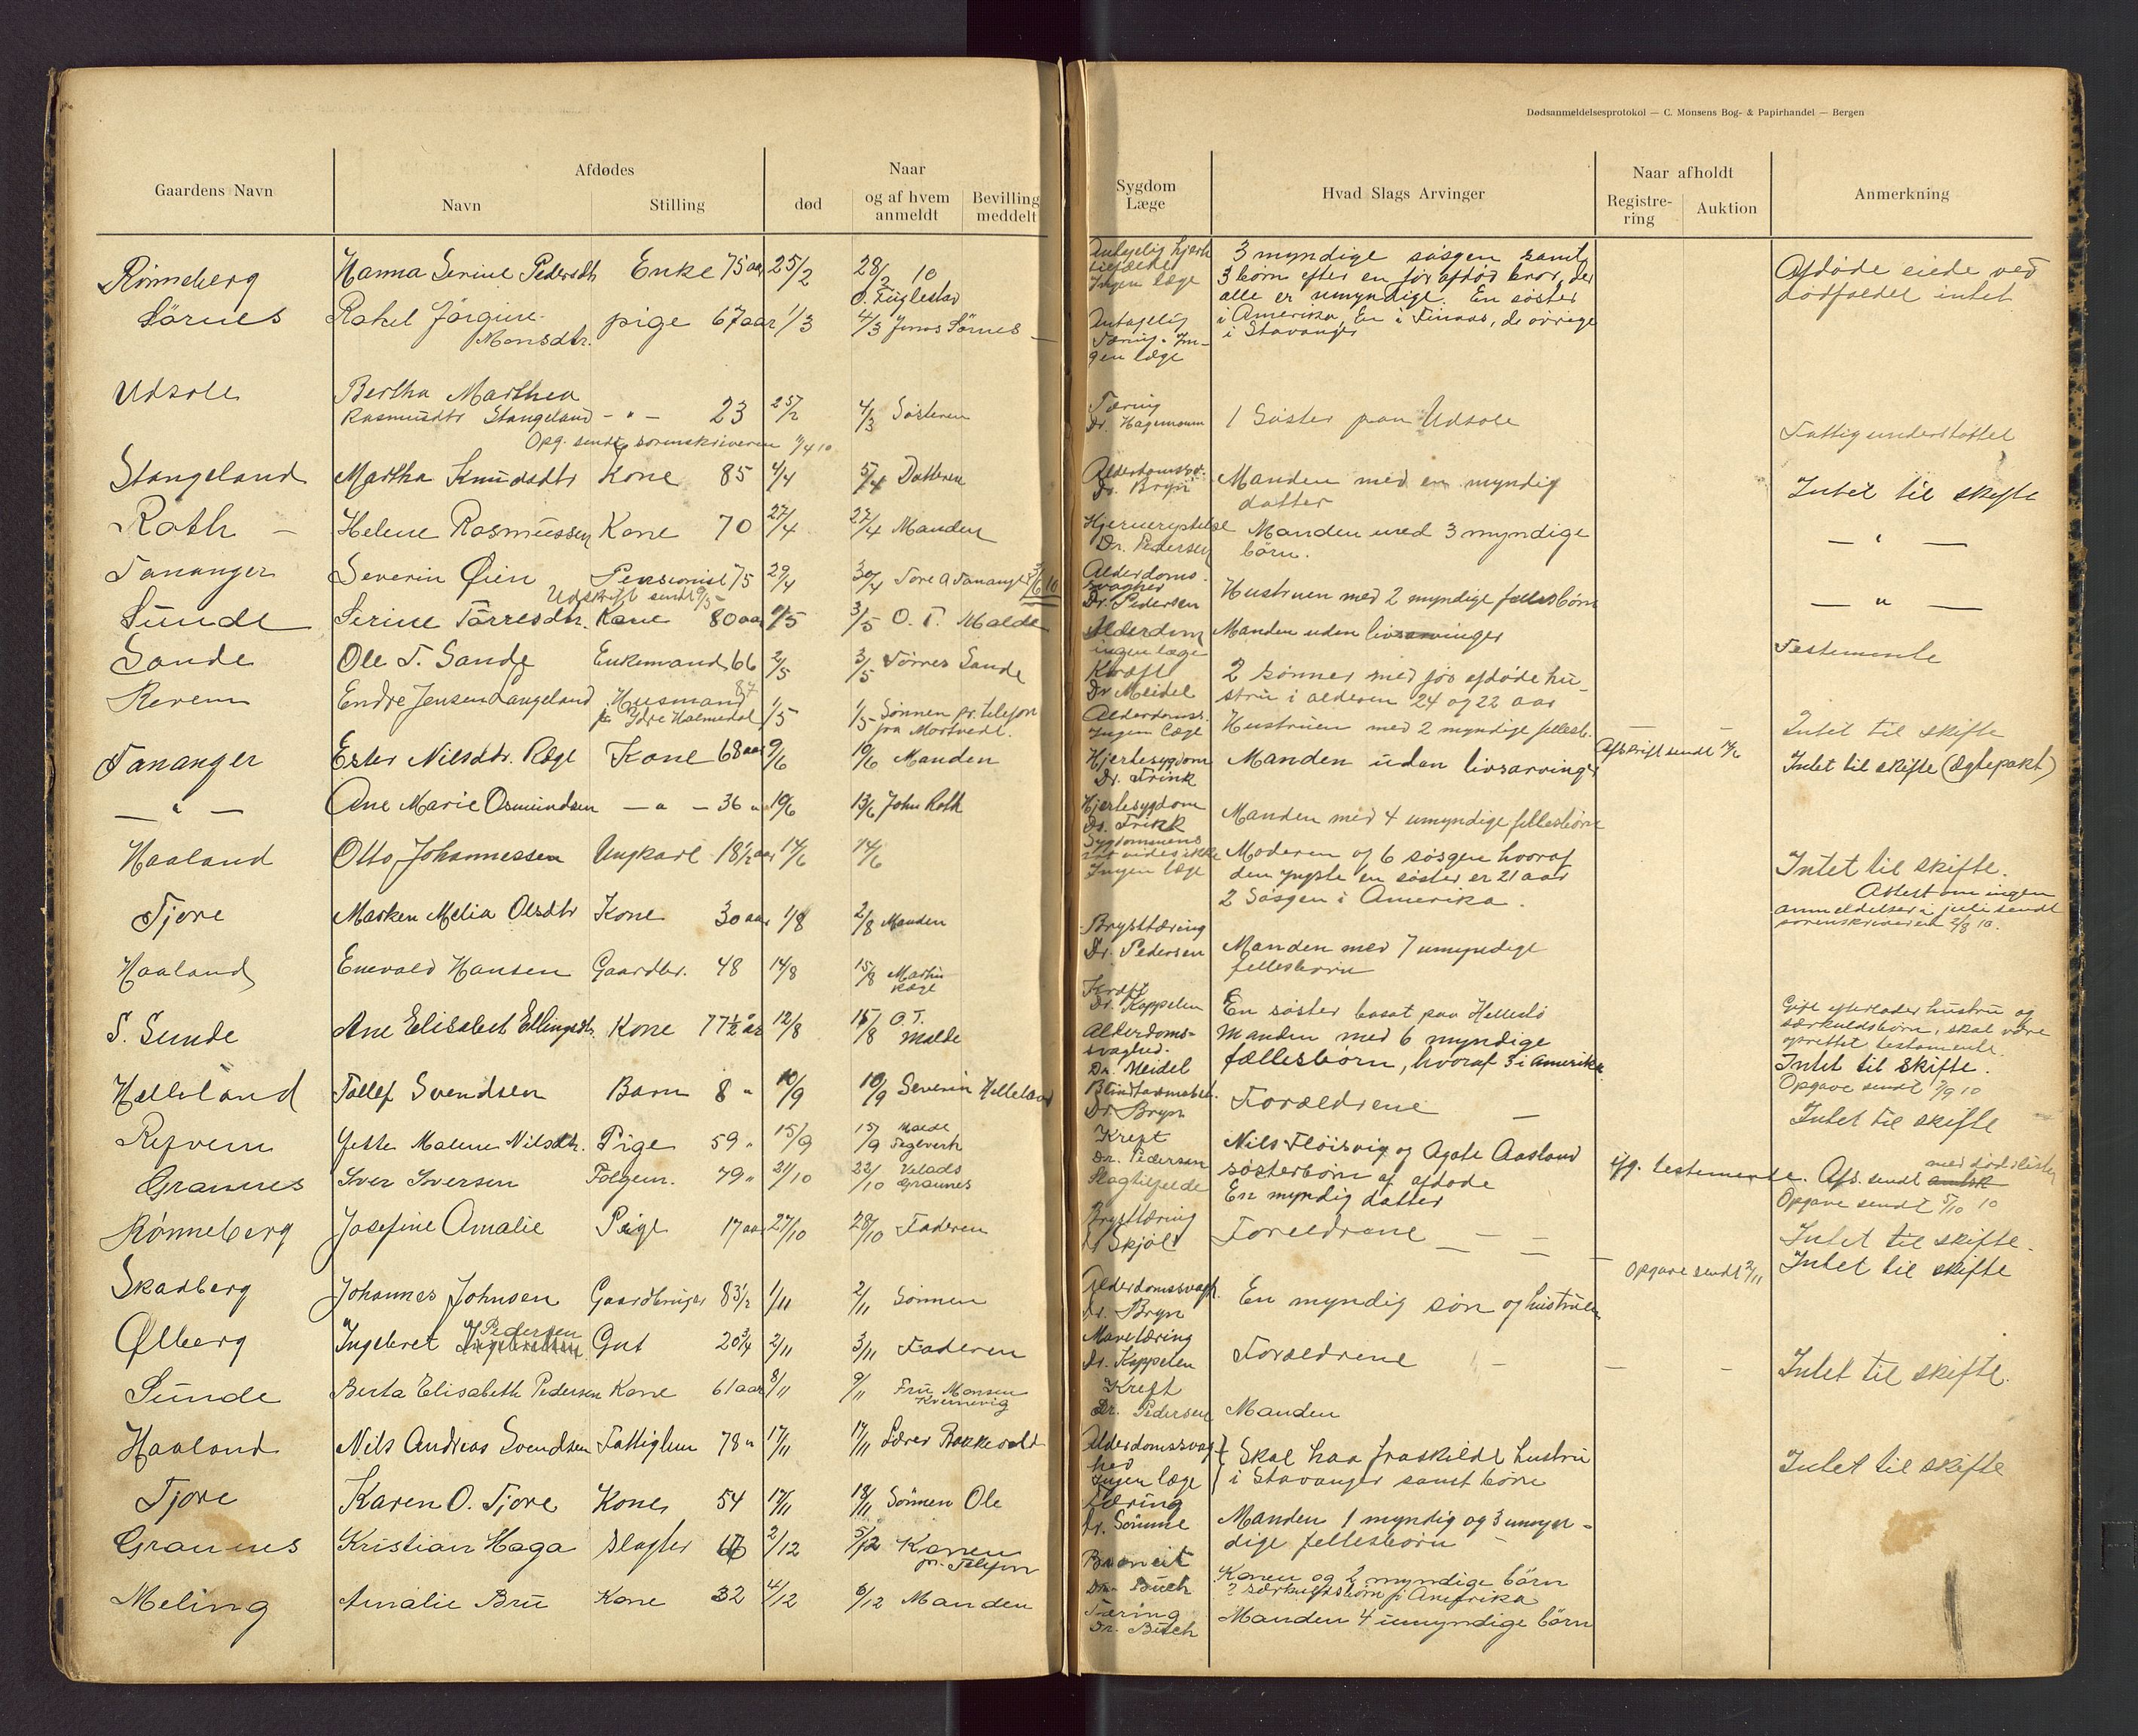 Dødsanmeldelsesprotokol — C. Monsens Bog- & Papirhandel — Bergen
Gaardens Navn
Afdødes
Navn
Stilling
Naar
død
og af hvem anmeldt
Bevilling meddelt
Sygdom
Læge
Hvad Slags Arvinger
Naar afholdt
Registrering
Auktion
Anmerkning
Rönneberg Hanna Serine Pedersdt Enke 75 aar 25/2 28/2 10
O. Fuglestad
Antagelig hjerte
tilfældet
Ingen læge
3 myndige søsgen samt
3 børn efter en før afdød bror, der
alle er umyndige. En søster
i Amerika, En i Finaas, de øvrige
i Stavanger
Afdøde eiede ved
dødfaldet intet
Sörnes Rakel Jörgine Monsdtr. pige 67 aar 1/3 4/3 Jonas Sörnes
Antagelig
Tæring. In-
gen læge
Udsole Bertha Marthea
Rasmusdtr Stangeland - " - 23 25/2 4/3 Søsteren
Opg. sendt sorenskriveren 11/4 10
Tæring
Dr. Hagemann
1 Søster paa Udsole
Fattigunderstøttet
Stangeland Martha Knudsdtr Kone 85 4/4 5/4 Datteren
Alderdomssv.
Dr. Bryn
Manden med en myndig
datter
Intet til skifte
Roth - Helene Rasmussen Kone 70 27/4 27/4 Manden
Hjernerystelse
Dr. Pedersen
Manden med 3 myndige
børn.
— " —
Tananger Severin Øien Pensionist 75 29/4 30/4 Tore A Tananger
Udskrift sendt 9/5
Alderdoms-
svaghed
Dr. Pedersen
Hustruen med 2 myndige fellesbörn
— " —
Sunde Serine Tørresdtr. Kone 80 aar 1/5 3/5 O. T. Malde
Alderdom
ingen læge
Manden uden livsarvinger
Testemente
Sande Ole T. Sande Enkemand 66 2/5 3/5 Tørres Sande
Kræft
Dr Meidel
2 sønner med før afdøde hu-
stru i alderen 24 og 22 aar
Revem Endre Jensen Langeland Husmand 87
fra Ydre Halmedal 1/5 1/5 Sønnen pr. telefon
fra Mortvedt.
Alderdomss.
Ingen Læge
Hustruen med 2 myndige fellesb.
Intet til skifte
Tananger Ester Nilsdtr. Rege Kone 68 aar 9/6 10/6 Manden
Hjertesygdom
Dr. Frink
Manden uden livsarvinger
Afskrift sendt
Intet til skifte (Ægtepakt)
— " — Ane Marie Osmundsen — " — 36 " 10/6 13/6 John Roth
Hjertesygdom
Dr. Frikk
Manden med 4 umyndige fellesbörn
Haaland Otto Johannessen Ungkarl 18 1/2 aar 14/6 14/6
Sygdommens
art vides ikke
Ingen læge
Moderen og 6 søsgen hvoraf
den yngste en søster er 21 aar
2 Søsgen i Amerika.
Intet til skifte.
Attest om ingen
anmeldelser i juli sendt
sorenskriveren 2/8 10.
Tjore Marken Melia Olsdtr Kone 30 aar 1/8 2/8 Manden
Brysttæring
Dr. Pedersen
Manden med 7 umyndige
fellesbörn
Haaland Enevald Hansen Gaardbr. 48 14/8 15/8 Martin
Rege
Dr. Kappelen
En søster bosat paa Hellestø
Gift efterlader hustru og
særkuldsbörn, skal være
oprettet testamente.
S. Sunde Ane Elisabet Ellingsdtr. Kone 77 1/2 aar 12/8 15/8 O. T.
Malde
Alderdoms-
svaghed.
Dr. Meidel
Manden med 6 myndige
fællesbörn, hvoraf 3 i Amerika.
Intet til skifte.
Opgave sendt 2/9 10
Helleland Tollef Svendsen Barn 8 " 10/9 10/9 Severin Helleland
Blindtarmsbet.
Dr. Bryn
Forældrene
Intet til skifte
Refvem Jette Malene Nilsdtr. Pige 59 " 15/9 15/9 Malde
Teglverk
Kreft
Dr. Pedersen
Nils Fløisvig og Agate Aasland
søsterbörn af afdøde
ifg. testemente. Afs. sendt med dødslisten
Grannes Iver Iversen Følgem. 79 " 21/10 22/10 Velads
Grannes
Slagtilfelde
En myndig datter
Opgave sendt 5/10 10
Rönneberg Josefine Amalie Pige 17 aar 27/10 28/10 Faderen
Brysttæring
Dr Skjöl
Foreldrene — —
Intet til skifte.
Skadberg Johannes Johnsen Gaardbruger 83 1/2 1/11 2/11 Sönnen
Alderdomssvagh.
Dr. Bryn
En myndig søn og hustruen
Opgave sendt 2/11
Intet til skifte
Ølberg Ingebret Pedersen Gut 20 3/4 2/11 3/11 Faderen
Mavetæring
Dr. Kappelen
Foræeldrene
Intet til skifte.
Sunde Berta Elisabeth Pedersen Kone 61 aar 8/11 9/11 Fru Monsen
Kvernevig
Kreft
Dr. Pedersen
Manden
Haaland Nils Andreas Svendsen Fattiglem 78 " 17/11 17/11 Lærer Bakkevold
Alderdomssvag
hed
Ingen læge
Skal haa fraskildt hustru
i Stavanger samt börn
Intet til skifte
Tjore Karen O. Tjore Kone 54 17/11 18/11 Sönnen Ole
Tæring
Dr. Sömme
Manden 1 myndig og 3 umyn-
dige fellesbörn
Grannes Kristian Haga slagter 2/12 5/12 Konen
pr. Telefon
Dr. Buch
Konen og 2 myndige børn
2 særkuldsbørn i Amerika
Meling Amalie Bru Kone 32 4/12 6/12 Manden
Tæring
Dr. Buch
Manden 4 umyndige börn